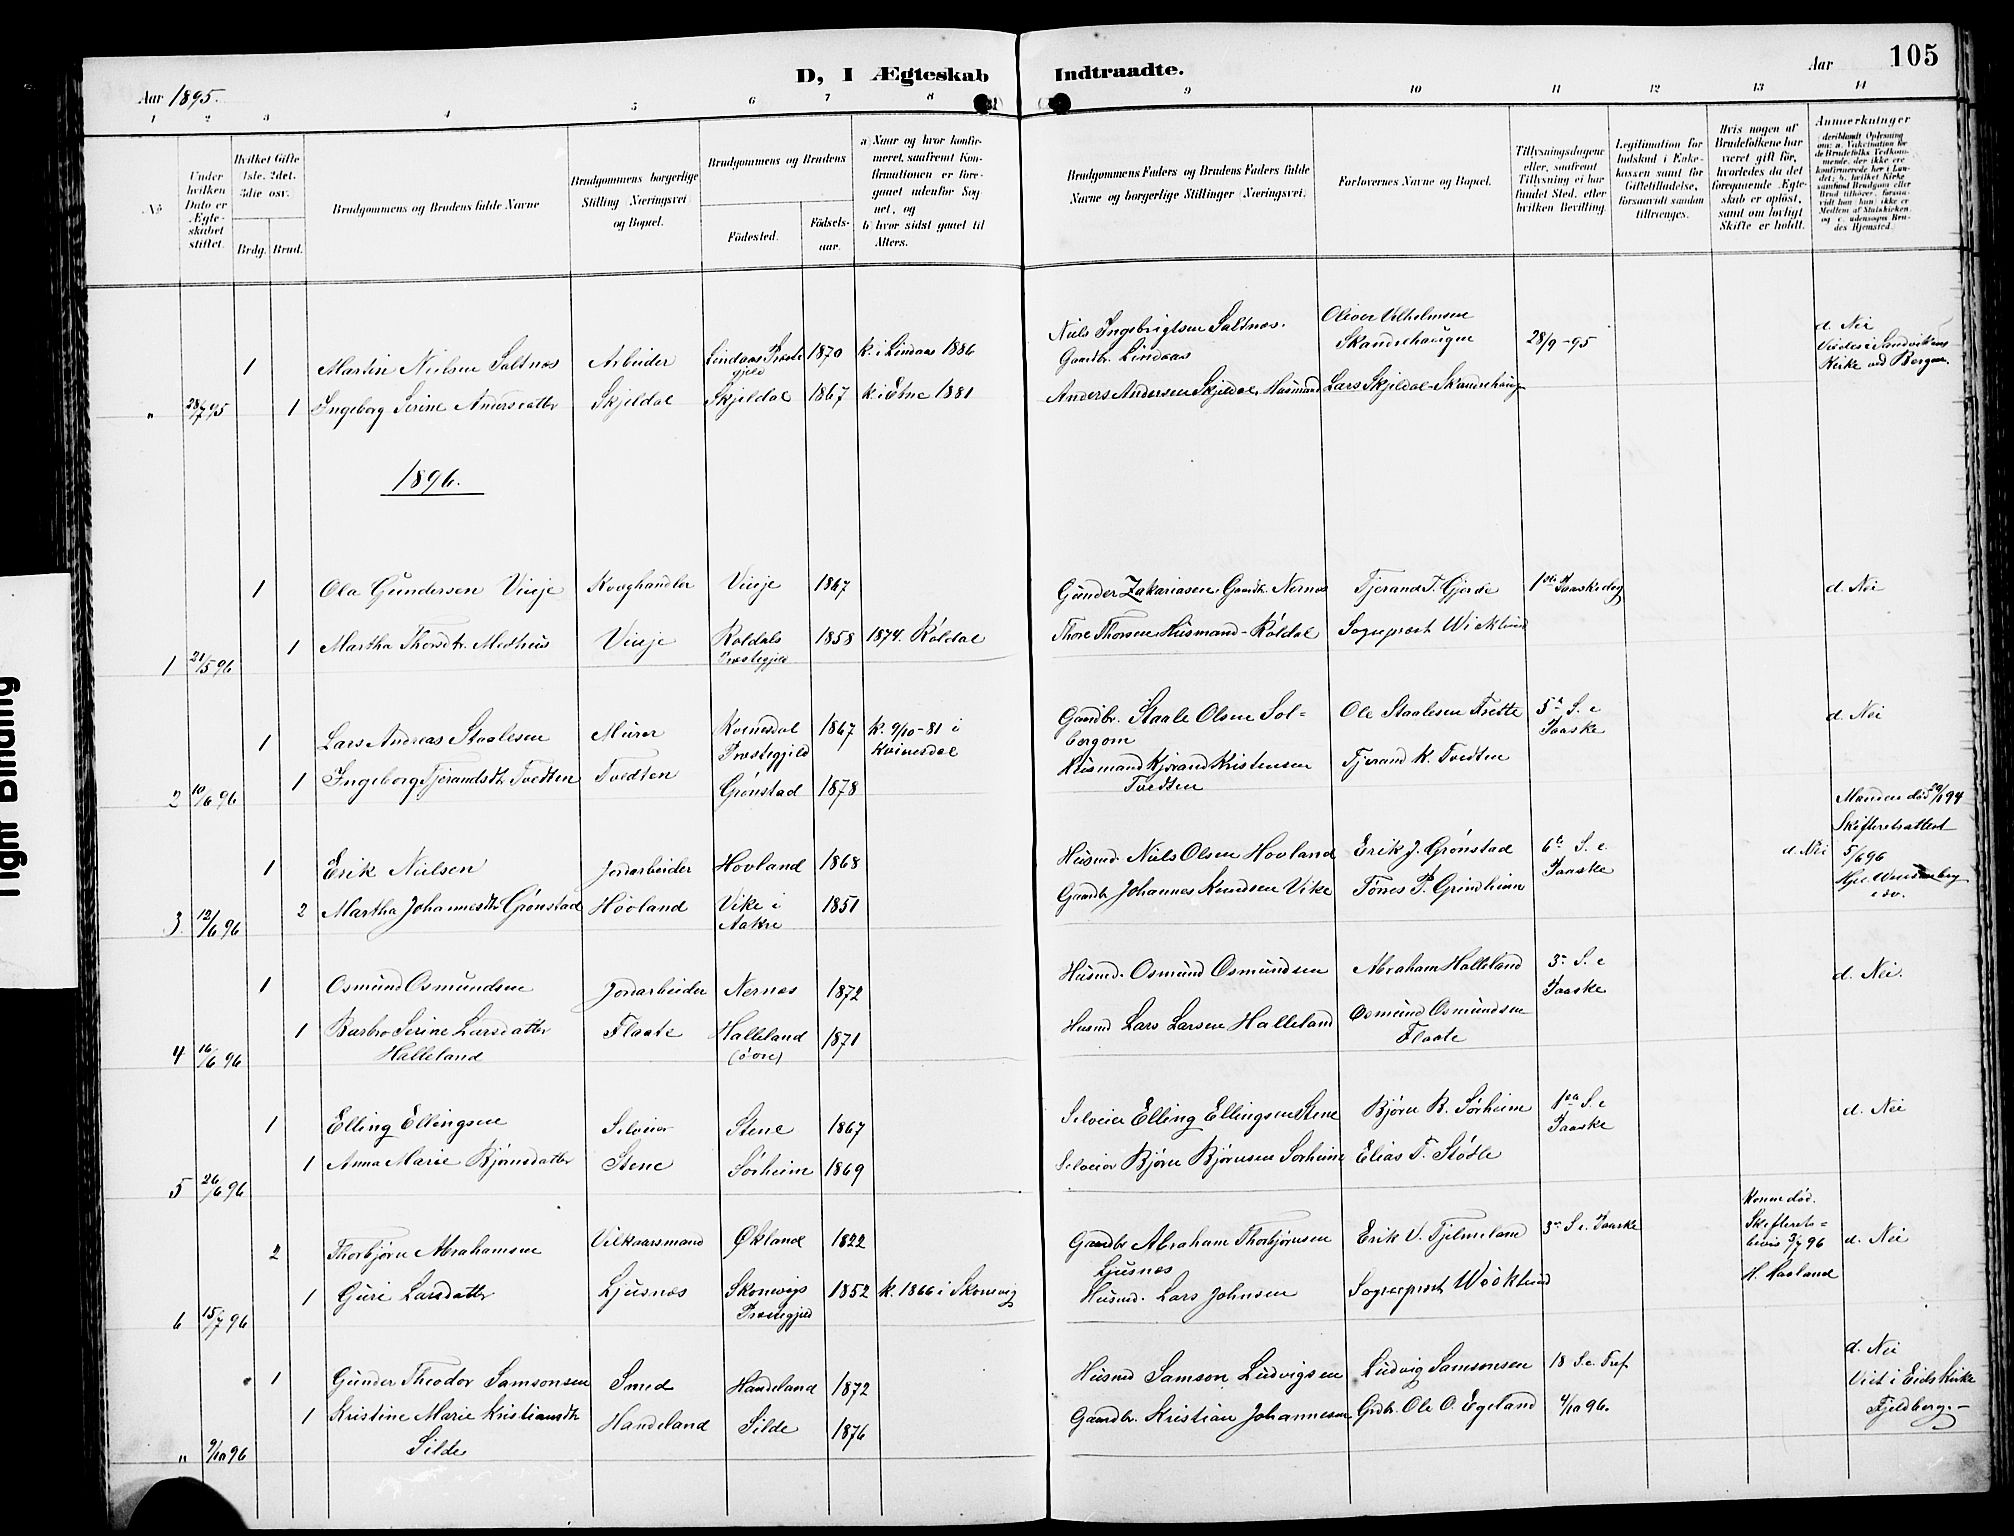 D, I Ægteskab Indtraadte.
Aar 1895.
Aar 105
1 2 3 4 5 6 7 8 9 10 11 12 13 14
No
Under hvilken Dato er Ægteskabet stiftet.
Hvilket Gifte 1ste, 2det, 3die osv.
Brdg. Brud.
Brudgommens og Brudens fulde Navne
Brudgommens borgerlige Stilling (Næringsvei) og Bopæl.
Brudgommens og Brudens
Fødested.
Fødselsaar.
a) Naar og hvor konfirmeret, saafremt Konfirmationen er foregaaet udenfor Sognet, og
b) hvor sidst gaaet til Alters.
Brudgommens Faders og Brudens Faders fulde Navne og borgerlige Stillinger (Næringsvei).
Forlovernes Navne og Bopæl.
Tillysningsdagene eller, saafremt Tillysning ei har fundet Sted, efter hvilken Bevilling.
Legitimation for Indskud i Enkekassen samt for Giftetilladelse, forsaavidt saadan tiltrænges.
Hvis nogen af Brudefolkene har været gift før, hvorledes da det foregaaende Ægteskab er opløst, samt om lovligt Skifte er holdt.
Anmerkninger
1 Martin Nielsen Saltnæs Arbeider Lindaas Præstegjeld 1870 k. i Lindaas 1886
Niels Ingebrigtsen Saltnæs. Gaardbr. Lindaas
Oliver Vilhelmsen Skandsehaugen 28/9-95
d. Nei Viedes i Sandvikens Kirke ved Bergen.
" 28/7 95 1 Ingeborg Serine Andersdatter Skjeldal Skjeldal 1867 k. i Etne 1881
Anders Andersen Skjeldal, Husmand Lars Skjeldal-Skandsehaugen
1896.
1 Ola Gundersen Vinje Kvæghandler Vinje 1867
Gunder Zakariasen, Gaardb. Nernæs Tjerand T. Gjerde 1ste Paaskedag d. Nei
1 21/5 96 1 Martha Thorsdtr. Medhuus Vinje Røldals Præstegjeld 1858 1874. Røldal
Thore Thorsen Husmand-Røldal Sognepræst Wicklund
1 Lars Andreas Staalesen Murer Kvinesdal Præstegjeld 1867 k. 9/10-81 i Kvinesdal
Gaardbr. Staale Olsen Solbergom Ole Staalesen Frette 5te S. e Paaske d. Nei
2 10/6 96 1 Ingeborg Tjerandsdtr. Tvedten Tvedten Grønstad 1878
Husmand Kjerand Kristensen Tvedten Tjerand K. Tvedten
1 Erik Nielsen Jordarbeider Hovland 1868
Husmd. Niels Olsen Hovland Erik J. Grønstad 6te S. e Paaske d. Nei
Manden død 29/1 94 Skifteretsattest 5/6 96
3 12/6 96 2 Martha Johannesdtr Grønstad Hovland Vike i Aakre 1851
Gaardbr Johannes Knudsen Vike Tønes P. Grindheim
1 Osmund Osmundsen Jordarbeider Nernæs 1872
Husmd. Osmund Osmundsen Abraham Halleland 3. S. e Paaske d. Nei.
4 16/6 96 1 Barbro Serine Larsdatter Halleland Flaate Halleland (øvre) 1871
Husmd Lars Larsen Halleland Osmund Osmundsen Flaate
1 Elling Ellingsen Selveier Stene 1867
Selveier Elling Ellingsen Stene Bjørn B. Sørheim 1ste S. e Paaske d. Nei
5 26/6 96 1 Anna Marie Bjørnsdatter Stene Sørheim 1869
Selveier Bjørn Bjørnsen Sørheim Elias T. Stødle
2 Thorbjørn Abrahamsen Vilkaarsmand Økland 1822
Gaardbr Abraham Thorbjørnsen Ljusnæs Erik V. Fjelmeland 3. S. e. Paaske
Konen død. Skifteretsbevis 3/7 96 H. Haaland d. Nei
6 15/7 96 1 Guri Larsdatter Ljusnæs Skonevigs Præstegjeld 1852 k. 1866 i Skonevig
Husmd. Lars Johnsen Sognepræst Wicklund
1 Gunder Theodor Samsonsen Smed Handeland 1872
Husmd Samson Ludvigsen Ludvig Samsonsen 18 S. e. Tref. 4/10 96.
d. Nei Viet i Eids Kirke Fjeldberg.-
" 9/10 96 1 Kristine Marie Kristiansdtr Silde Handeland Silde 1876
Gaardbr. Kristian Johannesen Grdbr. Ole O. Egeland
Tight Binding